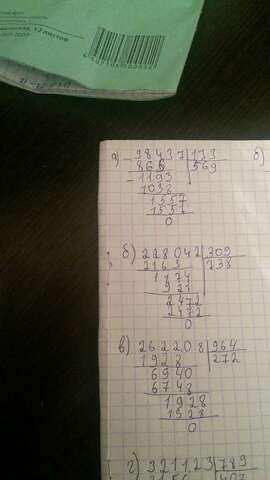 12 листов
а) 98437 | 173 б)
865 569
- 1193
1038
1557
1557
0
б) 228042 | 309
2163 738
1174
927
2472
2472
0
в) 262208 | 964
1928 272
6940
6748
1928
1928
0
г) 321123 | 789
3156 407